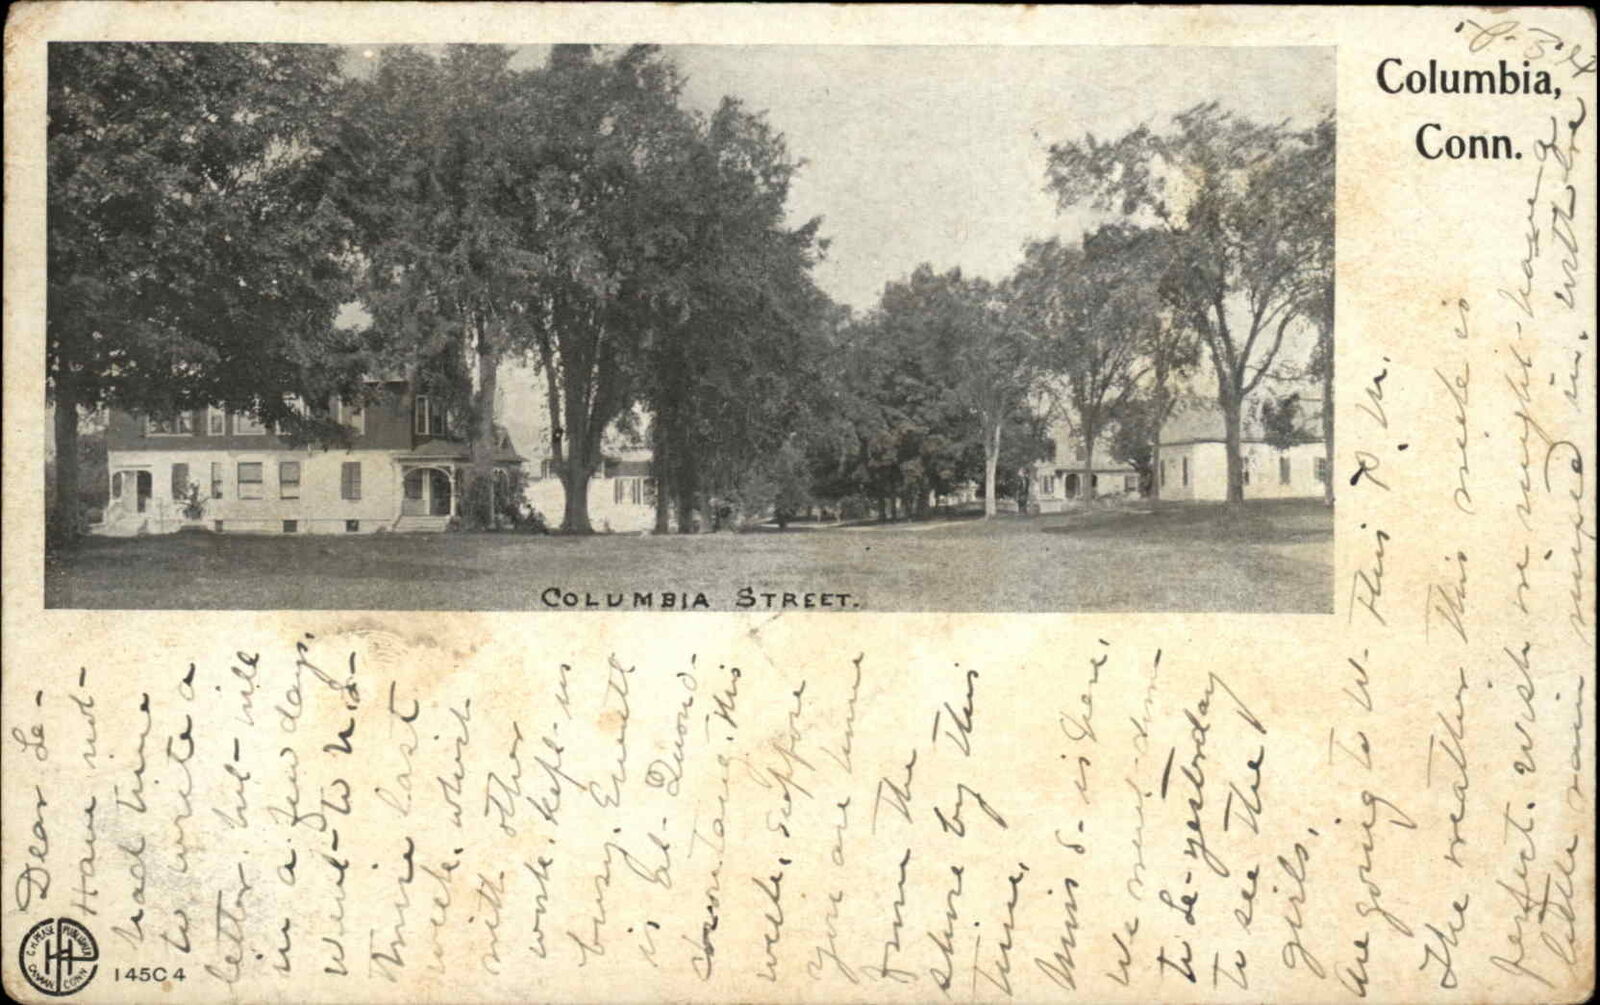 Columbia,
Conn.
COLUMBIA STREET.
Dear Le-
Have not-
had time
to write a
letter but- will
in a few days.
Went- to
time last
week, which
with other
work, kept- us
busy. Emett
is at-
this
week, suppose
you are home
from the
shore by this
time,
Miss S- is here,
We went down
to Le- yesterday
to see the
girls,
are going to W- this P.M.
The weather this week is
perfect. Wish we might have a
little rain mixed in. with love
C.H. PEASE PUBLISHER
CANAAN CONN
145C4